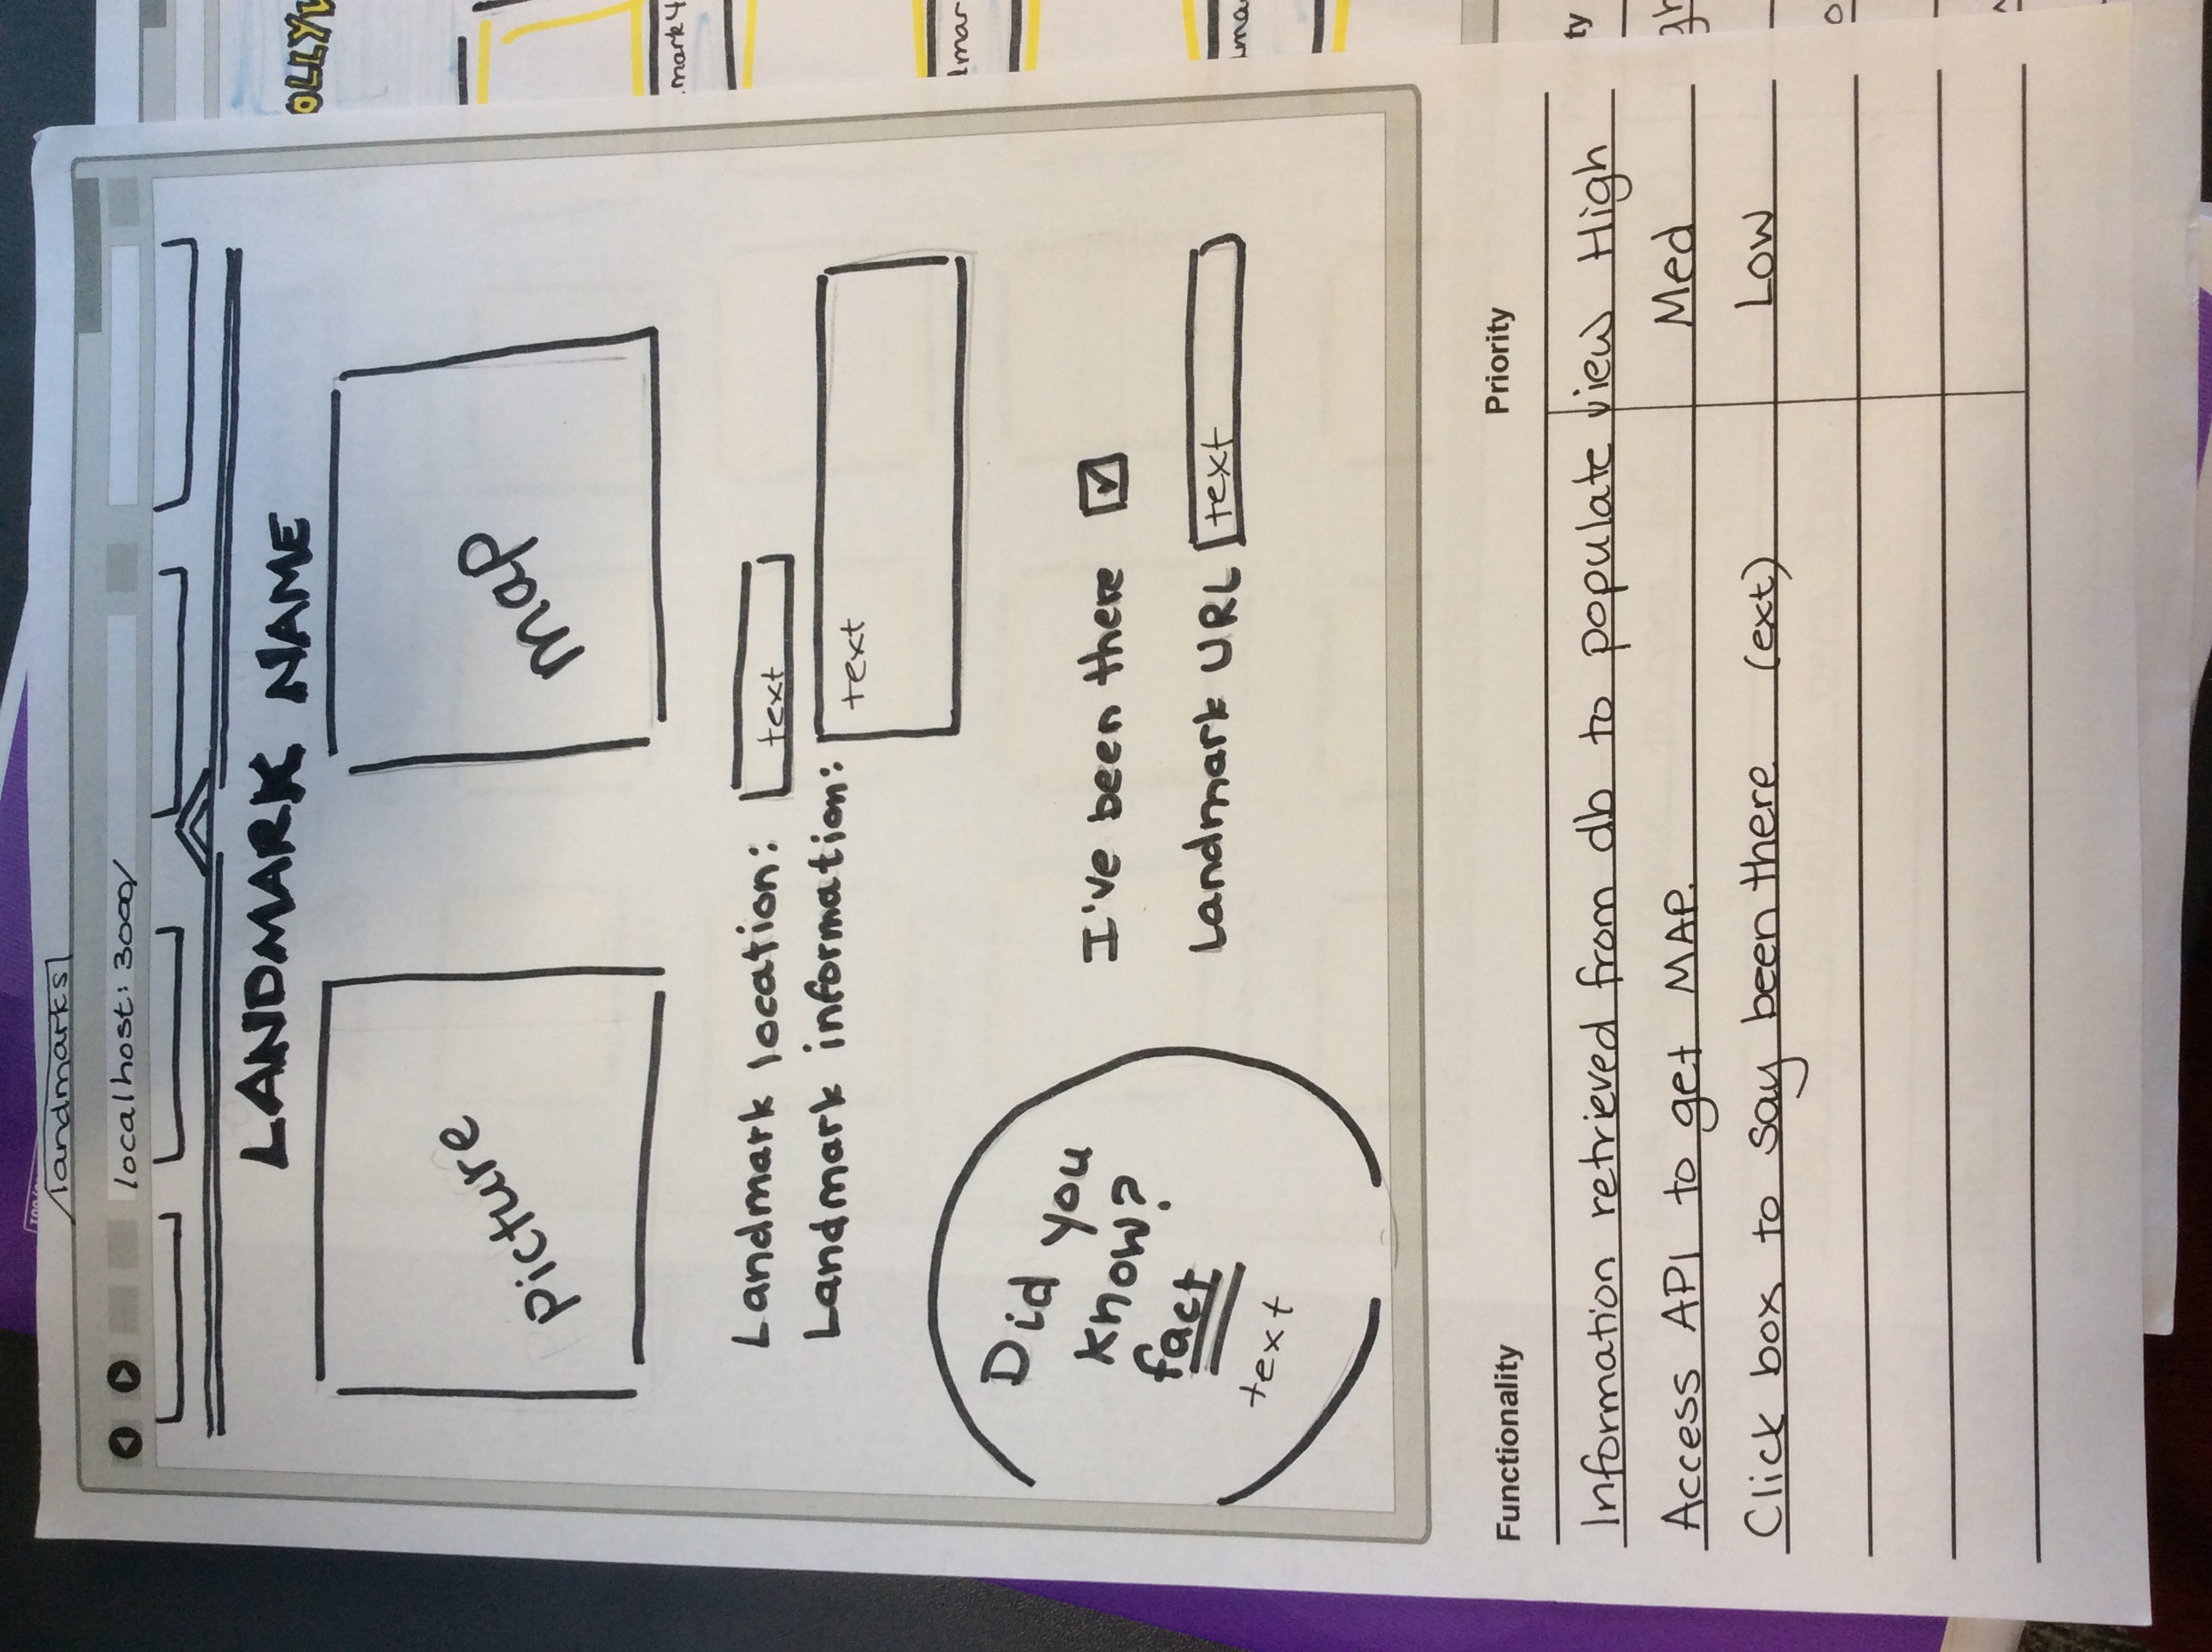 landmarks
localhost: 3000/
LANDMARK NAME
Picture
map
Landmark location: text
Landmark information: text
Did you
know?
fact
text
I've been there
Landmark URL text
Functionality Priority
Information retrieved from db to populate view High
Access API to get MAP. Med
Click box to say been there (ext) Low
OLLYW
mark4